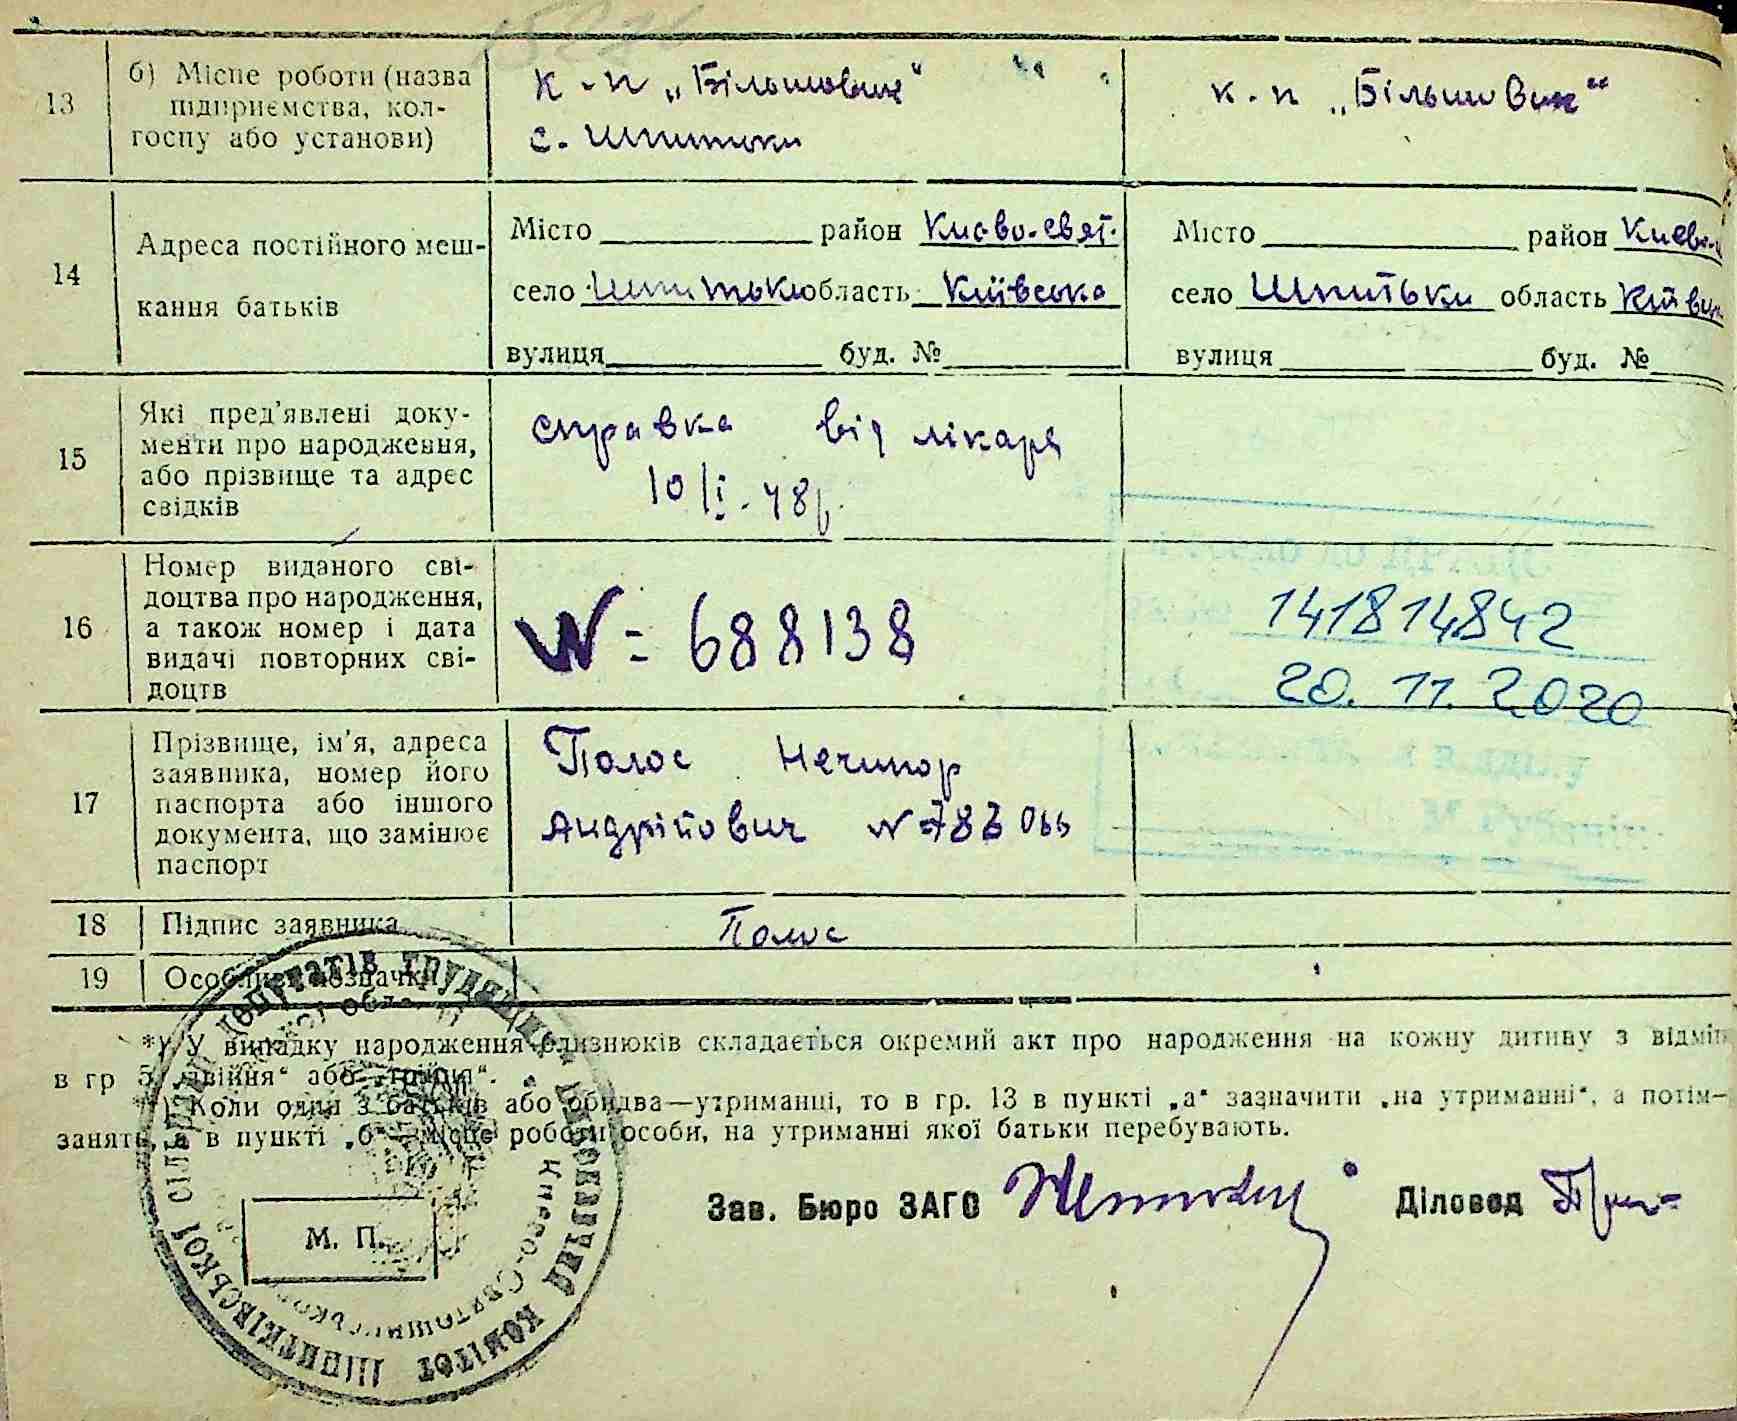 13
б) Місце роботи (назва
підприємства, кол-
госпу або установи)
к-п „Більшовик“
с. Шпитьки
к.-п „Більшовик“
14
Адреса постійного меш-
кання батьків
Місто район Києво-Свят.
село Шпитьки область Київська
вулиця буд. №
Місто район Києво-
село Шпитьки область
вулиця буд. №
15
Які пред'явлені доку-
менти про народження,
або прізвище та адрес
свідків
справка від лікаря
10/I-48р.
16
Номер виданого сві-
доцтва про народження,
а також номер і дата
видачі повторних сві-
доцтв
N= 688138
141814842
20.11.2020
17
Прізвище, ім'я, адреса
заявника, номер його
паспорта або іншого
документа, що замінює
паспорт
Полос Нечипор
Андрійович
18
Підпис заявника
Полос
19
Особливі позначки
*) У випадку народження близнюків складається окремий акт про народження на кожну дитину з відміт
в гр 5 „двійня“ або „трійня“.
) Коли один з батьків або обидва—утриманці, то в гр. 13 в пункті „а“ зазначити „на утриманні“, а потім—
заняття, а в пункті „б“—місце роботи особи, на утриманні якої батьки перебувають.
Зав. Бюро ЗАГС
Діловод
М. П.
Виконавчий комітет Шпитьківської сільської ради депутатів трудящих
Києво-Святошинського